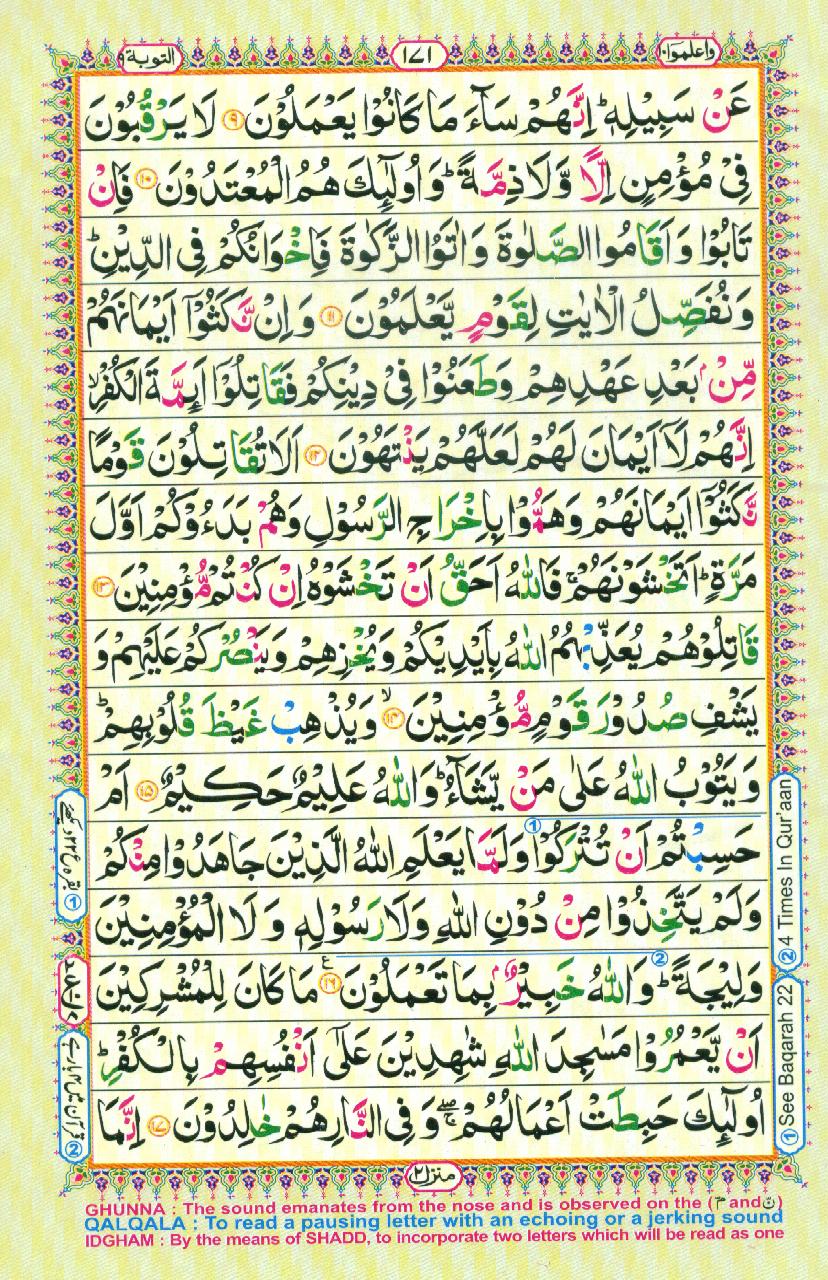 واعلموا۱۰
۱۷۱
التوبة ۹
عَنْ سَبِيْلِهٖ ؕ اِنَّهُمْ سَآءَ مَا كَانُوْا يَعْمَلُوْنَ ۹ لَا يَرْقُبُوْنَ
فِىْ مُؤْمِنٍ اِلًّا وَّلَا ذِمَّةً ؕ وَاُولٰٓئِكَ هُمُ الْمُعْتَدُوْنَ ۱۰ فَاِنْ
تَابُوْا وَاَقَامُوا الصَّلٰوةَ وَاٰتَوُا الزَّكٰوةَ فَاِخْوَانُكُمْ فِى الدِّيْنِ ؕ
وَنُفَصِّلُ الْاٰيٰتِ لِقَوْمٍ يَّعْلَمُوْنَ ۱۱ وَاِنْ نَّكَثُوْۤا اَيْمَانَهُمْ
مِّنْۢ بَعْدِ عَهْدِهِمْ وَطَعَنُوْا فِىْ دِيْنِكُمْ فَقَاتِلُوْۤا اَئِمَّةَ الْكُفْرِ ۙ
اِنَّهُمْ لَاۤ اَيْمَانَ لَهُمْ لَعَلَّهُمْ يَنْتَهُوْنَ ۱۲ اَلَا تُقَاتِلُوْنَ قَوْمًا
نَّكَثُوْۤا اَيْمَانَهُمْ وَهَمُّوْا بِاِخْرَاجِ الرَّسُوْلِ وَهُمْ بَدَءُوْكُمْ اَوَّلَ
مَرَّةٍ ؕ اَتَخْشَوْنَهُمْ ۚ فَاللّٰهُ اَحَقُّ اَنْ تَخْشَوْهُ اِنْ كُنْتُمْ مُّؤْمِنِيْنَ ۱۳
قَاتِلُوْهُمْ يُعَذِّبْهُمُ اللّٰهُ بِاَيْدِيْكُمْ وَيُخْزِهِمْ وَيَنْصُرْكُمْ عَلَيْهِمْ وَ
يَشْفِ صُدُوْرَ قَوْمٍ مُّؤْمِنِيْنَ ۙ ۱۴ وَيُذْهِبْ غَيْظَ قُلُوْبِهِمْ ؕ
وَيَتُوْبُ اللّٰهُ عَلٰى مَنْ يَّشَآءُ ؕ وَاللّٰهُ عَلِيْمٌ حَكِيْمٌ ۱۵ اَمْ
حَسِبْتُمْ اَنْ تُتْرَكُوْا وَلَمَّا يَعْلَمِ اللّٰهُ الَّذِيْنَ جَاهَدُوْا مِنْكُمْ
وَلَمْ يَتَّخِذُوْا مِنْ دُوْنِ اللّٰهِ وَلَا رَسُوْلِهٖ وَلَا الْمُؤْمِنِيْنَ
وَلِيْجَةً ؕ وَاللّٰهُ خَبِيْرٌۢ بِمَا تَعْمَلُوْنَ ۱۶ مَا كَانَ لِلْمُشْرِكِيْنَ
اَنْ يَّعْمُرُوْا مَسٰجِدَ اللّٰهِ شٰهِدِيْنَ عَلٰٓى اَنْفُسِهِمْ بِالْكُفْرِ ؕ
اُولٰٓئِكَ حَبِطَتْ اَعْمَالُهُمْ ۖۚ وَفِى النَّارِ هُمْ خٰلِدُوْنَ ۱۷ اِنَّمَا
منزل۲
② 4 Times In Qur'aan
① See Baqarah 22
GHUNNA : The sound emanates from the nose and is observed on the (مّ and نّ)
QALQALA : To read a pausing letter with an echoing or a jerking sound
IDGHAM : By the means of SHADD, to incorporate two letters which will be read as one